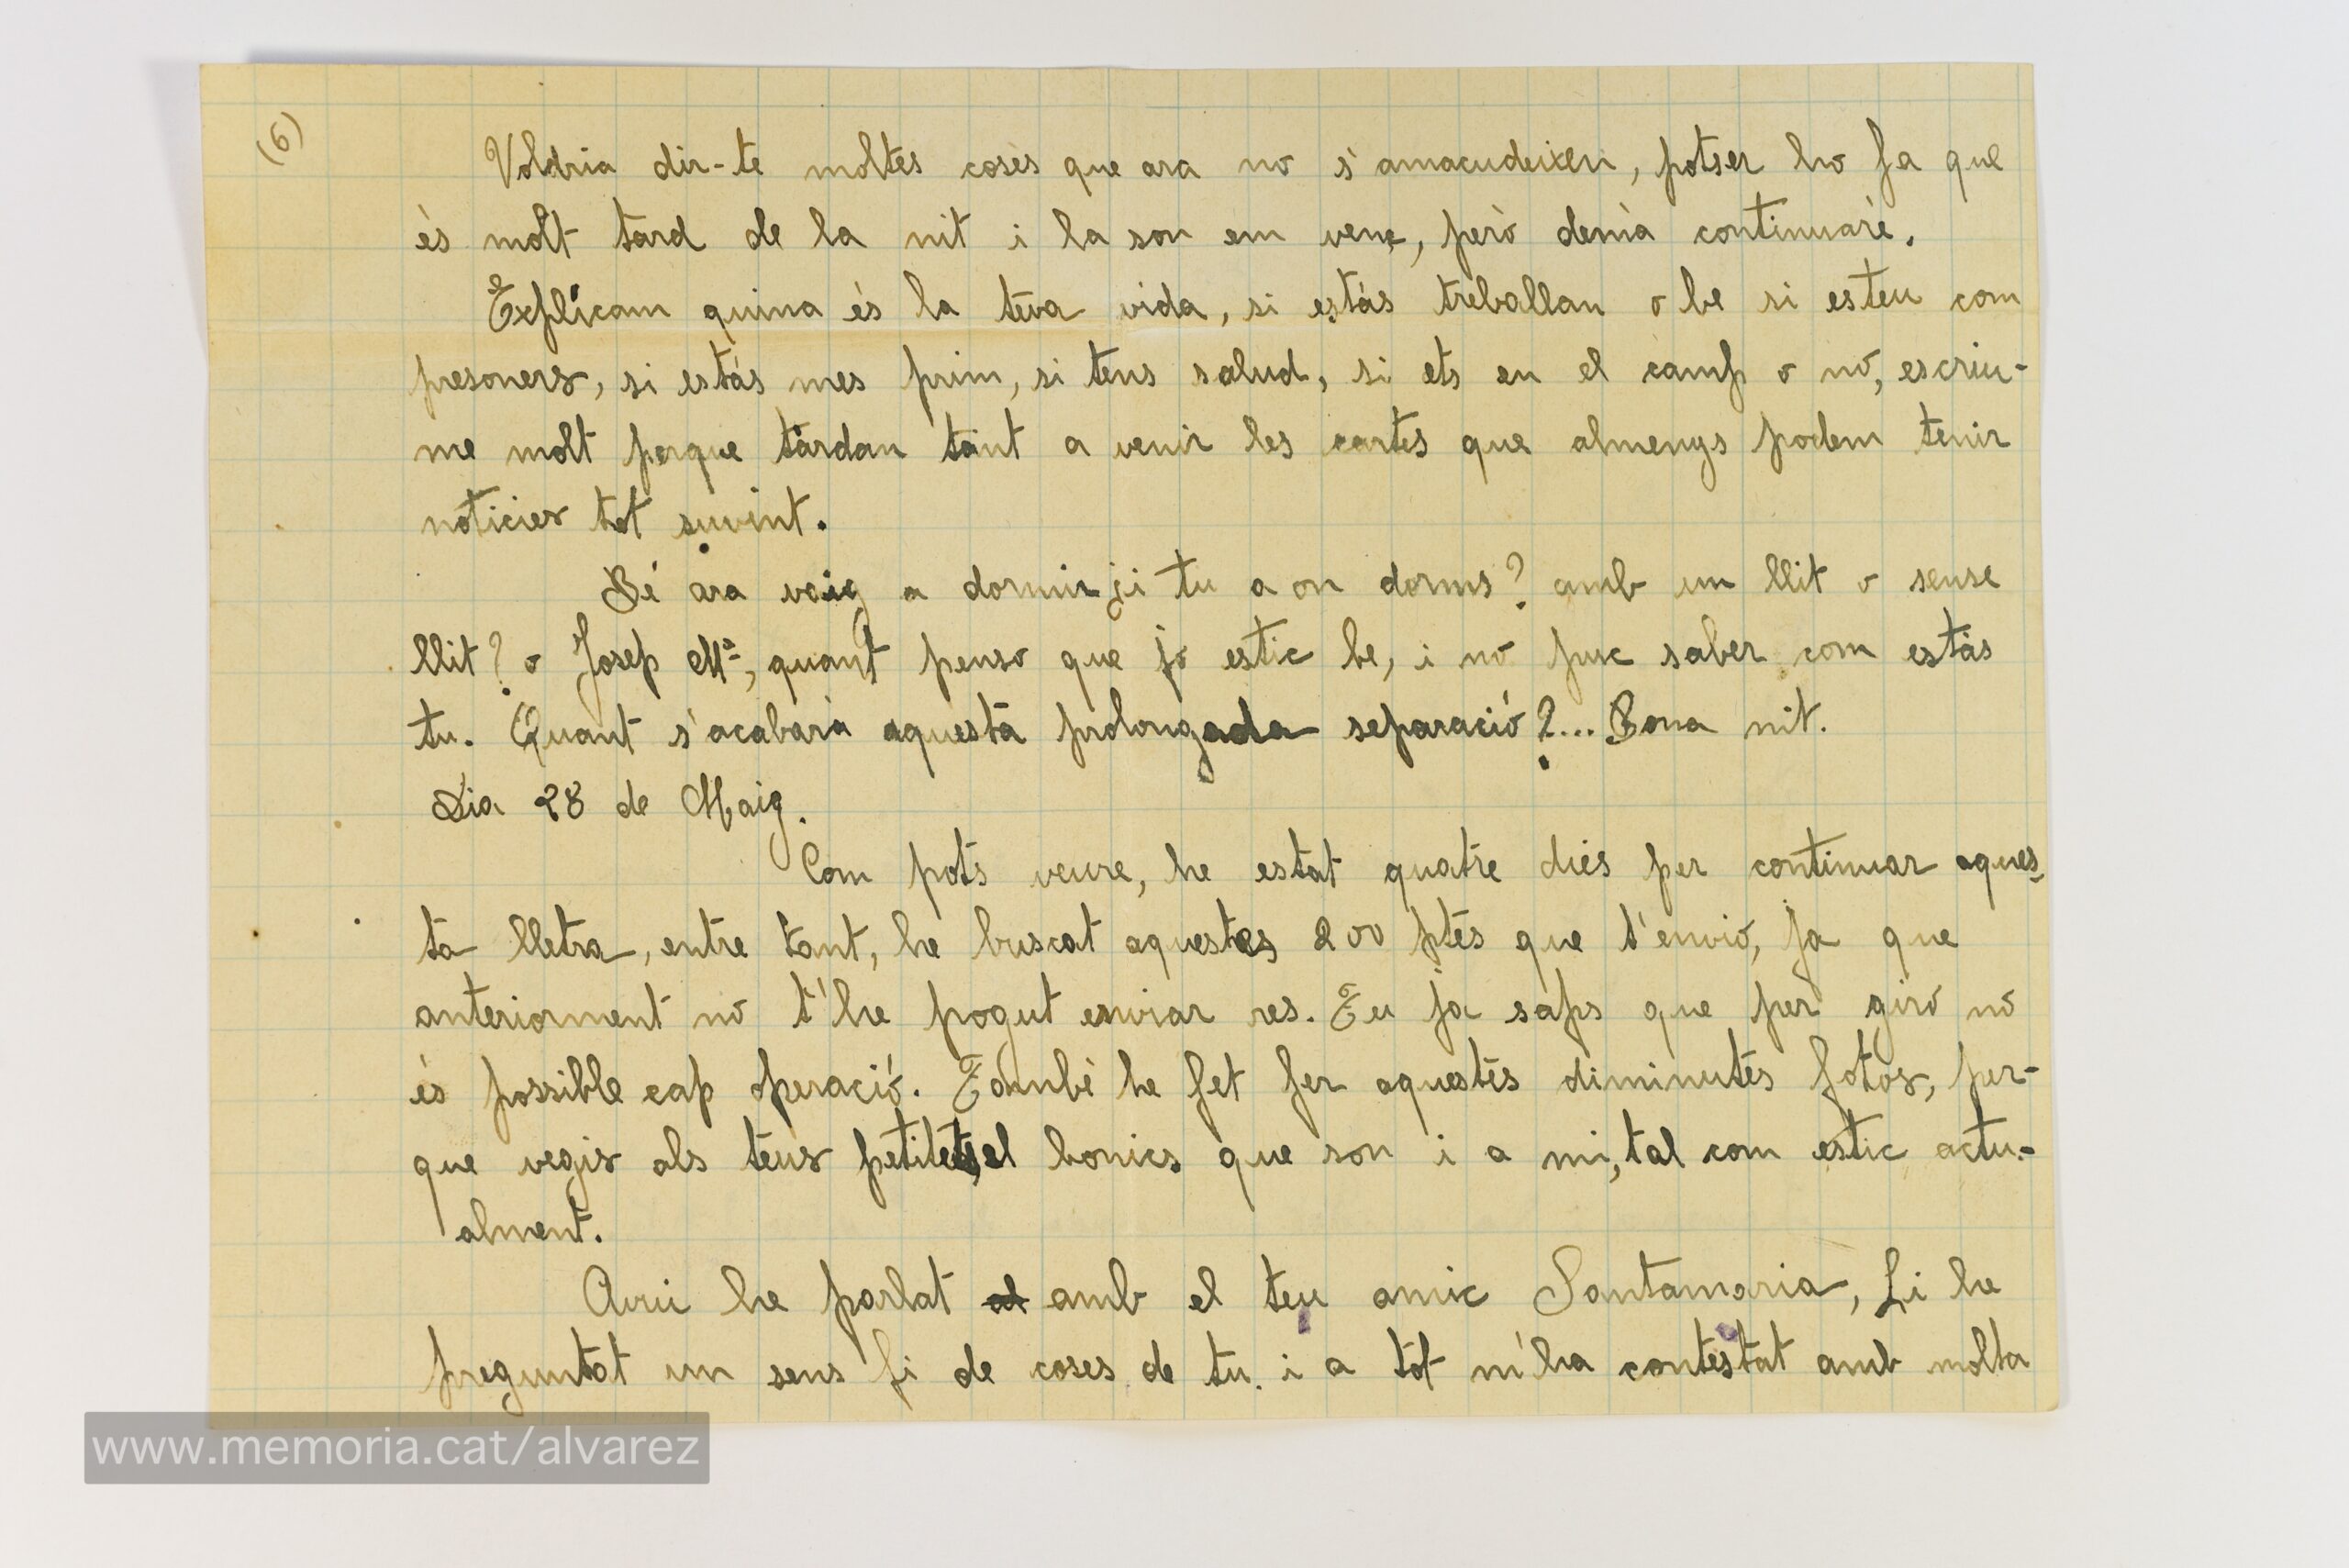 (6)
Voldria dir-te moltes coses que ara no s'amacudeixen, potser ho fa que
és molt tard de la nit i la son em venç, però demà continuaré.
Explícam quina és la teva vida, si estás treballan o be si esteu com
presoners, si estás mes prim, si tens salud, si ets en el camp o no, escriu-
me molt perque tárdan tant a venir les cartes que almenys podem tenir
noticies tot suvint.
Bé ara vaig a dormir ¿i tu a on dorms? amb un llit o sense
llit? o Josep Mª, quant penso que jo estic be, i no puc saber com estás
tu. Quant s'acabará aquesta prolongada separació?... Bona nit.
Dia 28 de Maig.
Com pots veure, he estat quatre dies per continuar aques-
ta lletra, entre tant, he buscat aquestes 200 ptes que t'envio, ja que
anteriorment no t'he pogut enviar res. Tu ja saps que per giro no
és possible cap operació. També he fet fer aquestes diminutes fotos, per-
que vegis als teus petitets, el bonics que son i a mi, tal com estic actu-
alment.
Avui he parlat al amb el teu amic Santamaria, Li he
preguntat un sens fi de coses de tu. i a tot m'ha contestat amb molta
www.memoria.cat/alvarez